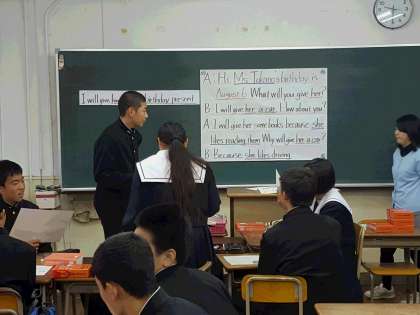 I will give her birthday present
A: Hi Ms. Takano's birthday is
August 6. What will you give her?
B: I will give her a car. How about you?
A: I will give her some books because she
likes reading them. Why will give her a car?
B: Because she likes driving.